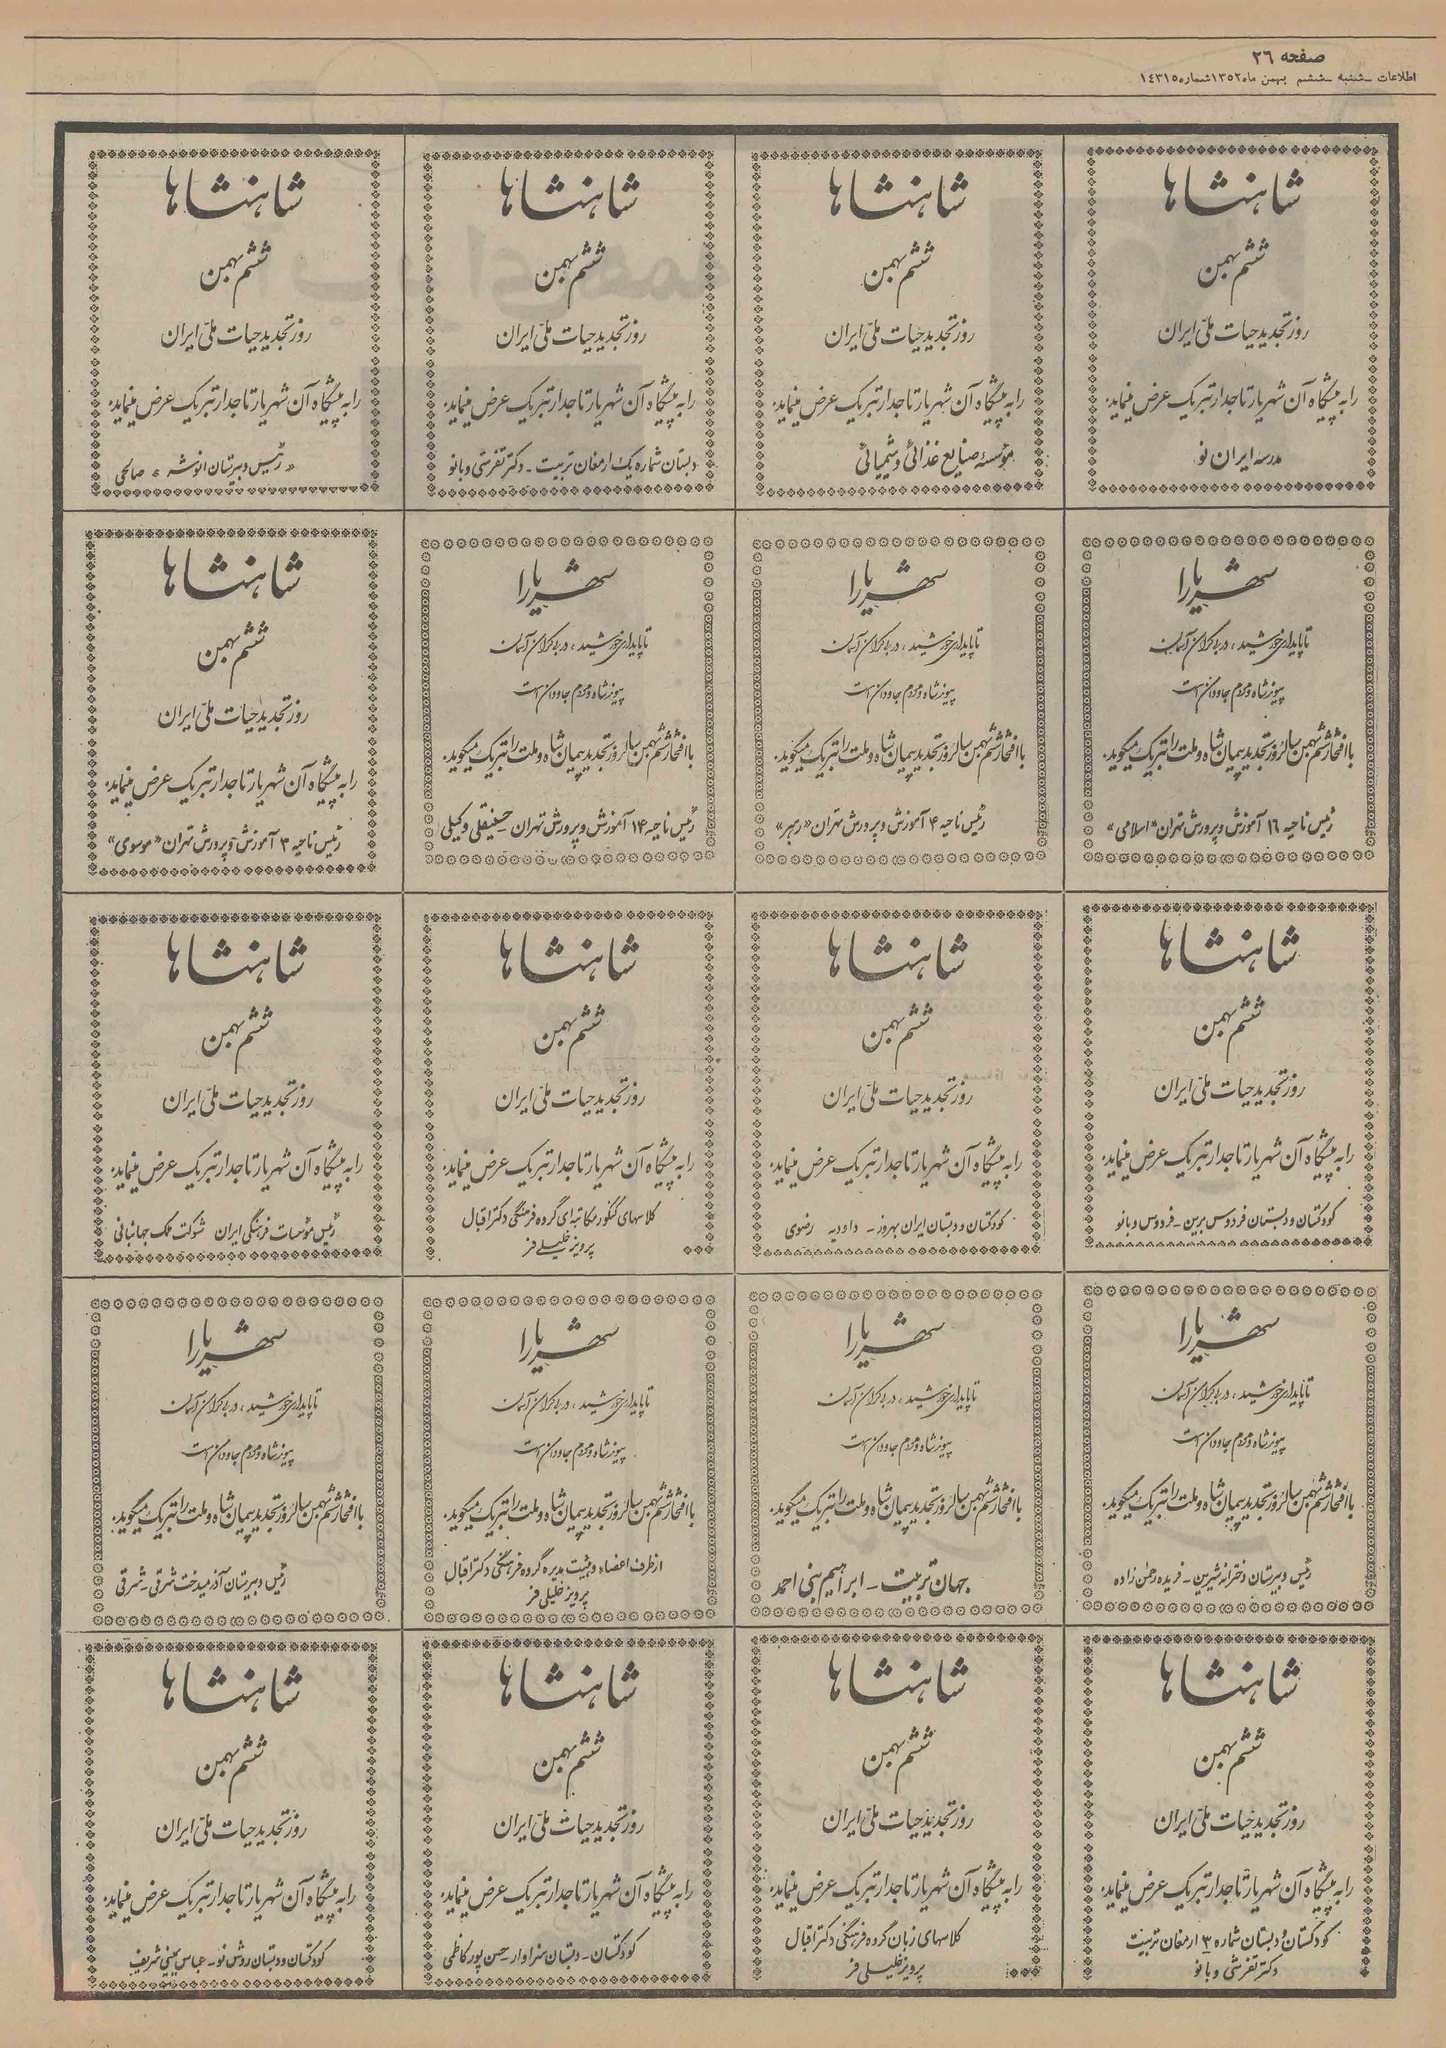 صفحه ۲۶
اطلاعات ـ شنبه ـ ششم بهمن ماه ۱۳۵۲ شماره ۱۴۳۱۵
شاهنشاها
ششم بهمن
روز تجدید حیات ملی ایران
را به پیشگاه آن شهریار تاجدار تبریک عرض مینماید.
مدرسه ایران نو
شاهنشاها
ششم بهمن
روز تجدید حیات ملی ایران
را به پیشگاه آن شهریار تاجدار تبریک عرض مینماید.
مؤسسه صنایع غذائی و شیمیائی
شاهنشاها
ششم بهمن
روز تجدید حیات ملی ایران
را به پیشگاه آن شهریار تاجدار تبریک عرض مینماید.
دبستان شماره یک ارمغان تربیت ـ دکتر تفرشی و بانو
شاهنشاها
ششم بهمن
روز تجدید حیات ملی ایران
را به پیشگاه آن شهریار تاجدار تبریک عرض مینماید.
رئیس دبیرستان انوشه * صالحی
شهریارا
تا پایداری خورشید، در بیکران آسمان
پیوند شاه و مردم جاودان است
با افتخار ششم بهمن سالروز تجدید پیمان شاه و ملت را تبریک میگوید.
رئیس ناحیه ۱۶ آموزش و پرورش تهران «اسلامی»
شهریارا
تا پایداری خورشید، در بیکران آسمان
پیوند شاه و مردم جاودان است
با افتخار ششم بهمن سالروز تجدید پیمان شاه و ملت را تبریک میگوید.
رئیس ناحیه ۴ آموزش و پرورش تهران «رهبر»
شهریارا
تا پایداری خورشید، در بیکران آسمان
پیوند شاه و مردم جاودان است
با افتخار ششم بهمن سالروز تجدید پیمان شاه و ملت را تبریک میگوید.
رئیس ناحیه ۱۴ آموزش و پرورش تهران ـ حسینقلی وکیلی
شاهنشاها
ششم بهمن
روز تجدید حیات ملی ایران
را به پیشگاه آن شهریار تاجدار تبریک عرض مینماید.
رئیس ناحیه ۳ آموزش و پرورش تهران «موسوی»
شاهنشاها
ششم بهمن
روز تجدید حیات ملی ایران
را به پیشگاه آن شهریار تاجدار تبریک عرض مینماید.
کودکستان و دبستان فردوس برین ـ فردوس و بانو
شاهنشاها
ششم بهمن
روز تجدید حیات ملی ایران
را به پیشگاه آن شهریار تاجدار تبریک عرض مینماید.
کودکستان و دبستان ایران بهروز ـ داودیه رضوی
شاهنشاها
ششم بهمن
روز تجدید حیات ملی ایران
را به پیشگاه آن شهریار تاجدار تبریک عرض مینماید.
کلاسهای کنکور مکاتبه ای گروه فرهنگی دکتر اقبال
پرویز خلیلی فر
شاهنشاها
ششم بهمن
روز تجدید حیات ملی ایران
را به پیشگاه آن شهریار تاجدار تبریک عرض مینماید.
رئیس مؤسسات فرهنگی ایران شوکت ملک جهانبانی
شهریارا
تا پایداری خورشید، در بیکران آسمان
پیوند شاه و مردم جاودان است
با افتخار ششم بهمن سالروز تجدید پیمان شاه و ملت را تبریک میگوید.
رئیس دبیرستان دخترانه شیرین ـ فریده رحمن زاده
شهریارا
تا پایداری خورشید، در بیکران آسمان
پیوند شاه و مردم جاودان است
با افتخار ششم بهمن سالروز تجدید پیمان شاه و ملت را تبریک میگوید.
جهان تربیت ـ ابراهیم بنی احمد
شهریارا
تا پایداری خورشید، در بیکران آسمان
پیوند شاه و مردم جاودان است
با افتخار ششم بهمن سالروز تجدید پیمان شاه و ملت را تبریک میگوید.
از طرف اعضاء و هیئت مدیره گروه فرهنگی دکتر اقبال
پرویز خلیلی فر
شهریارا
تا پایداری خورشید، در بیکران آسمان
پیوند شاه و مردم جاودان است
با افتخار ششم بهمن سالروز تجدید پیمان شاه و ملت را تبریک میگوید.
رئیس دبیرستان آذرمیدخت شرقی ـ شرقی
شاهنشاها
ششم بهمن
روز تجدید حیات ملی ایران
را به پیشگاه آن شهریار تاجدار تبریک عرض مینماید.
کودکستان و دبستان شماره ۳ ارمغان تربیت
دکتر تفرشی و بانو
شاهنشاها
ششم بهمن
روز تجدید حیات ملی ایران
را به پیشگاه آن شهریار تاجدار تبریک عرض مینماید.
کلاسهای زبان گروه فرهنگی دکتر اقبال
پرویز خلیلی فر
شاهنشاها
ششم بهمن
روز تجدید حیات ملی ایران
را به پیشگاه آن شهریار تاجدار تبریک عرض مینماید.
کودکستان ـ دبستان سزاوار ـ حسن پور کاظمی
شاهنشاها
ششم بهمن
روز تجدید حیات ملی ایران
را به پیشگاه آن شهریار تاجدار تبریک عرض مینماید.
کودکستان و دبستان روش نو ـ عباس یمینی شریف